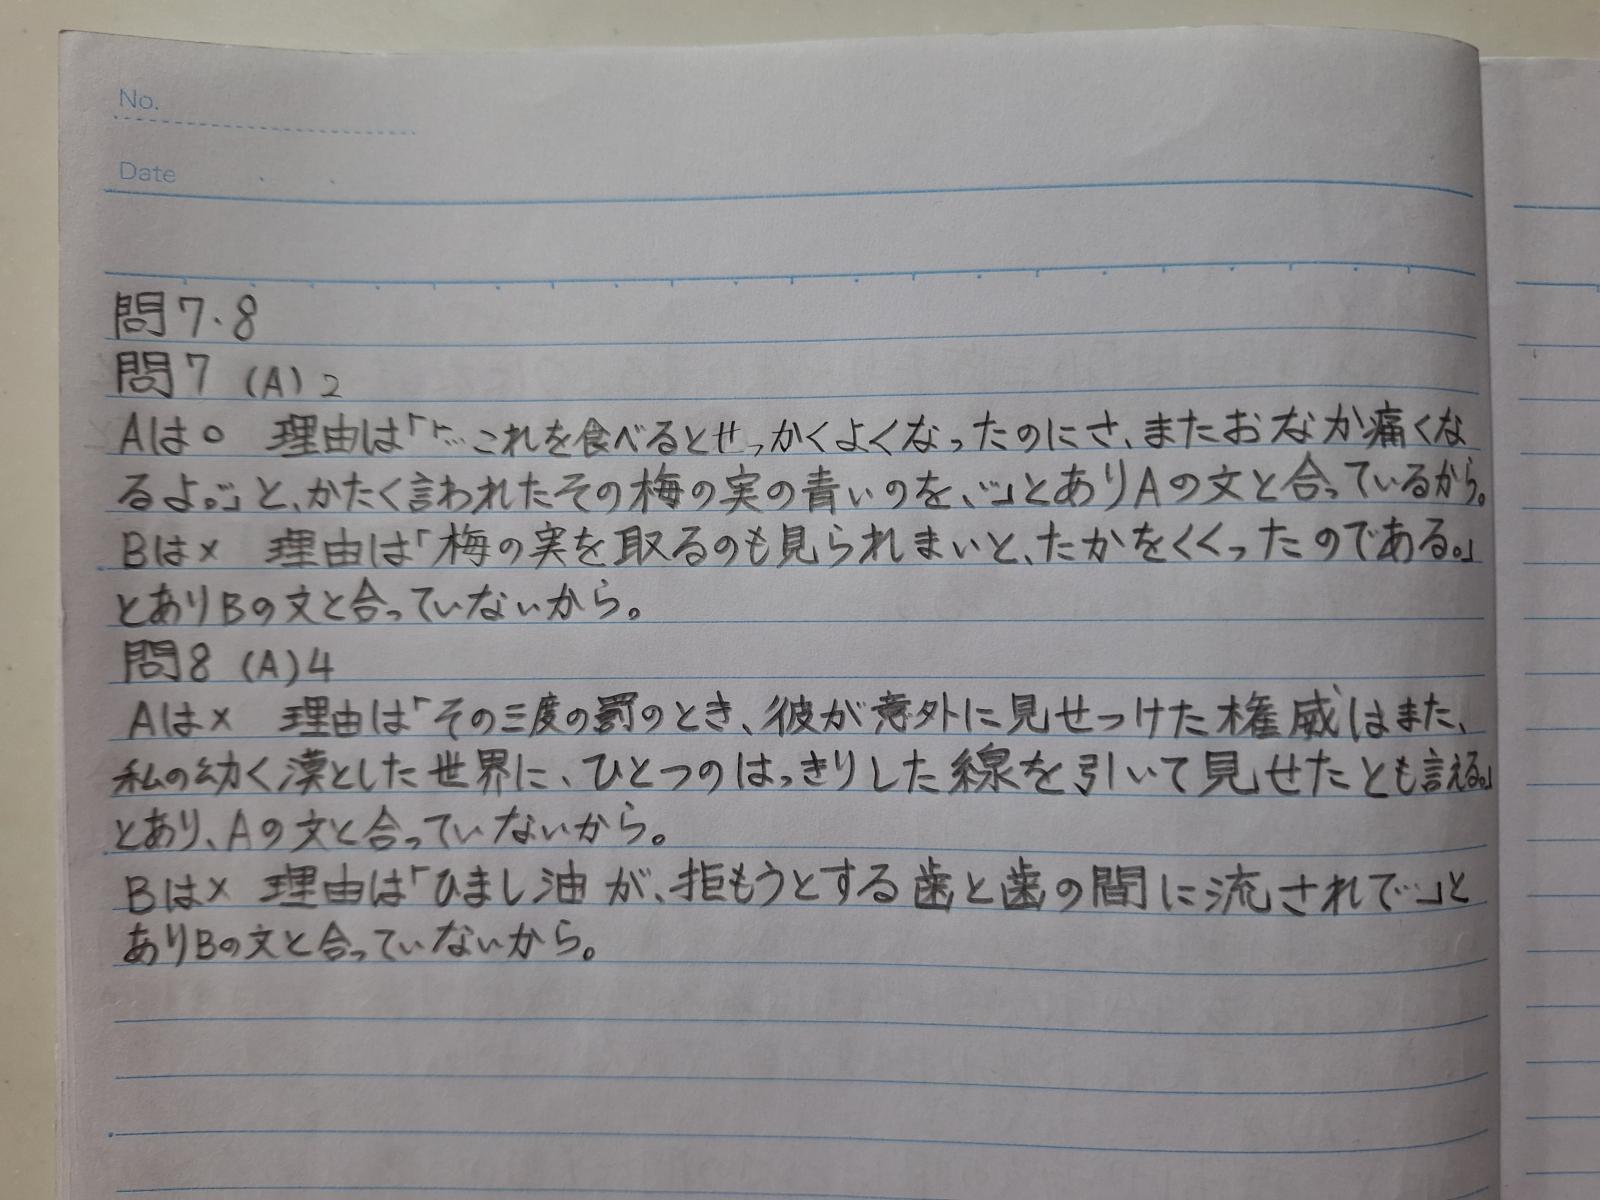 No.
Date
問7.8
問7 (A) 2
Aは○ 理由は「「…これを食べるとせっかくよくなったのにさ、またおなか痛くな
るよ。」と、かたく言われたその梅の実の青いのを、…」とありAの文と合っているから。
Bは× 理由は「梅の実を取るのも見られまいと、たかをくくったのである。」
とありBの文と合っていないから。
問8 (A)4
Aは× 理由は「その三度の罰のとき、彼が意外に見せつけた権威はまた、
私の幼く漠とした世界に、ひとつのはっきりした線を引いて見せたとも言える。」
とあり、Aの文と合っていないから。
Bは× 理由は「ひまし油が、拒もうとする歯と歯の間に流されて…」と
ありBの文と合っていないから。